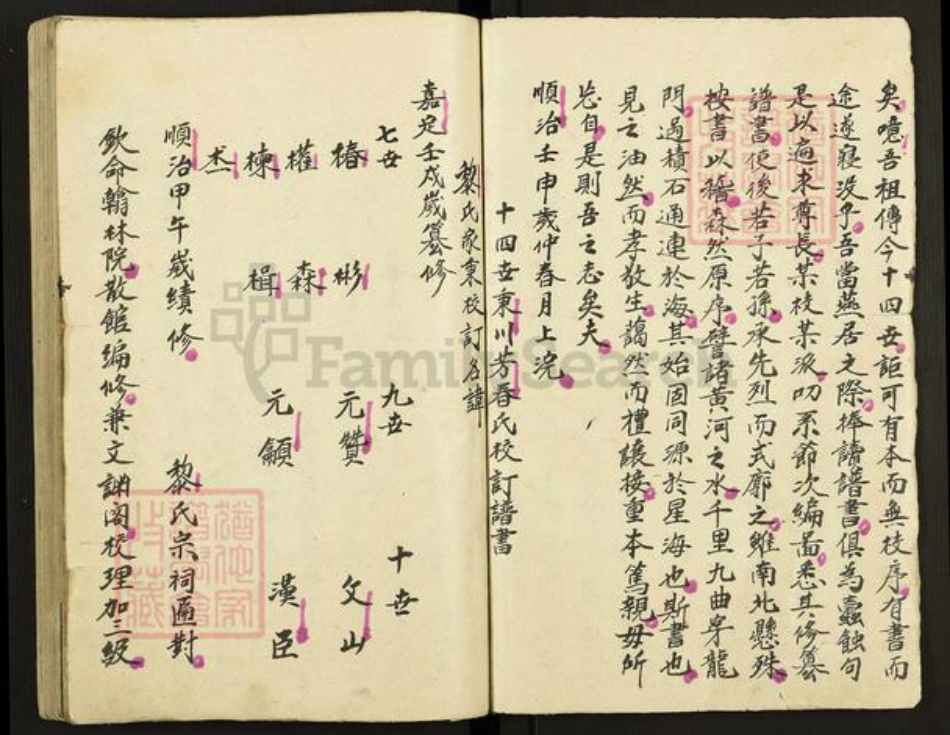 矣噫吾祖傳今十四世詎可有本而無枝序有書而
途遂寢沒乎吾當燕居之際捧讀譜書俱為蠹蝕句
是以遍求尊長某枝某派叨系節次編啚悉其修纂
譜書使後若子若孫承先烈而式廓之雖南北懸殊
按書以稽森然原序譬諸黃河之水千里九曲穿龍
門過積石通連於海其始固同源於星海也斯書也
見之油然而孝敬生藹然而禮讓接重本篤親毋所
忘自是則吾之志矣夫
順治壬申歲仲春月上浣
十四世秉川芳春氏校訂譜書
黎氏家乘校訂名諱
嘉定壬戌歲纂修
七世 九世 十世
椿 彬 元贊 文山
權 森
棟 楫 元龥 漢臣
杰
順治甲午歲績修 黎氏宗祠匾對
欽命翰林院散館編修兼文淵阁校理加三級
FamilySearch